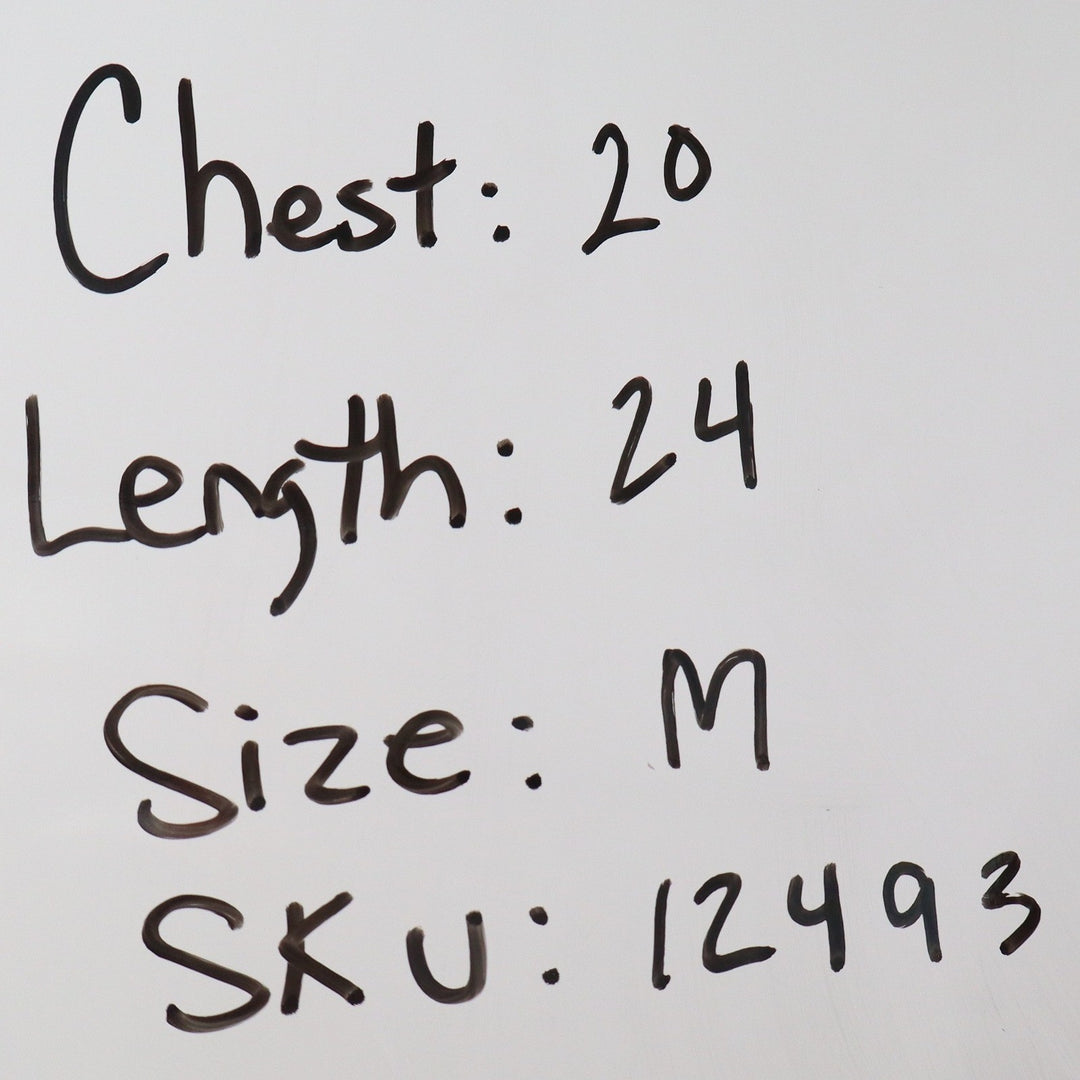 Chest: 20
Length: 24
Size: M
SKU: 12493